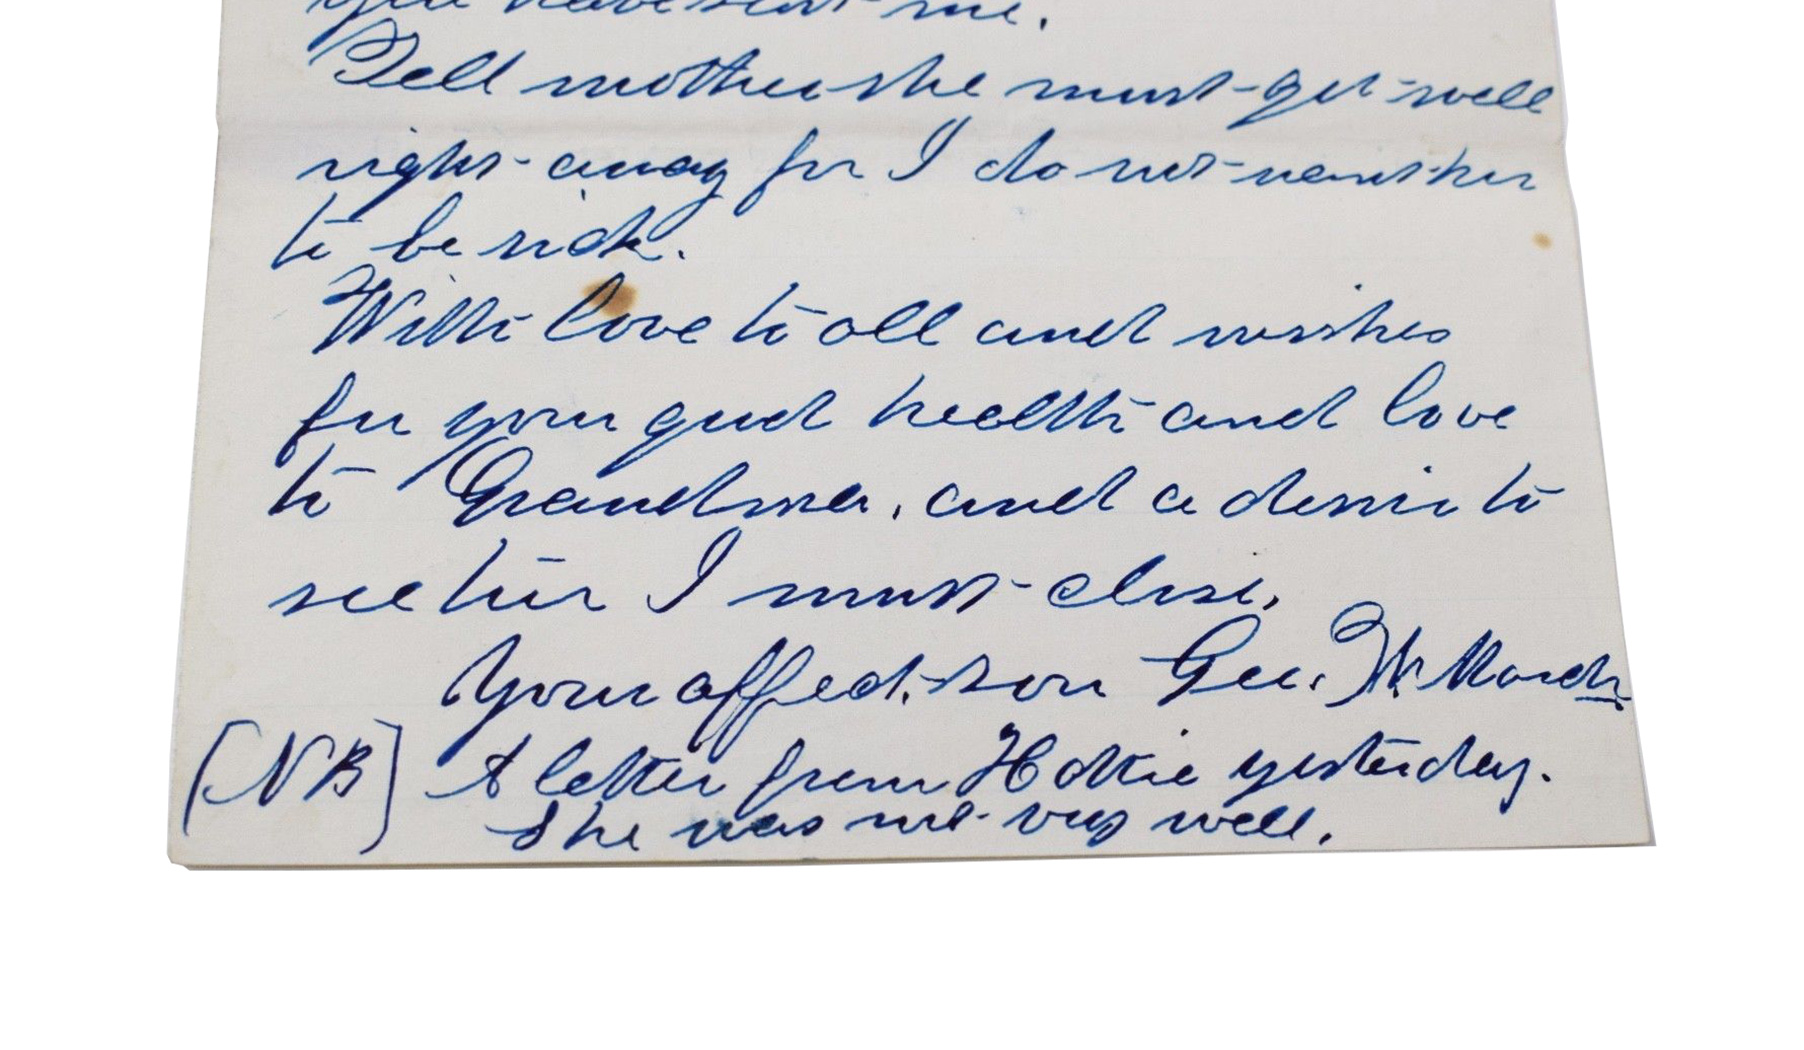 you have sent me.
Tell mother she must get well
right away for I do not want her
to be sick.
With love to all and wishes
for your good health and love
to Grandma, and a desire to
see her I must close,
Your affect. son Geo. W. March
[NB] A letter from Hattie yesterday.
She was not very well.